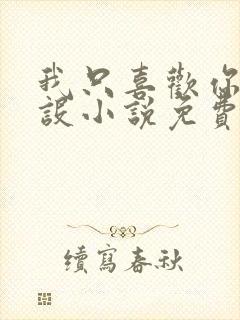 我只喜歡你
設小說免費
續寫春秋